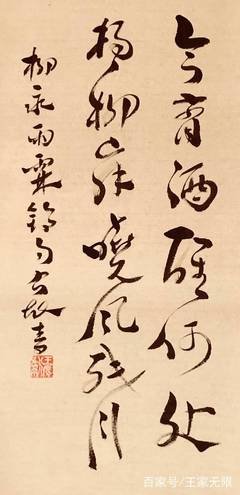 今宵酒醒何处
杨柳岸晓风残月
柳永雨霖铃句
百家号/王家无限